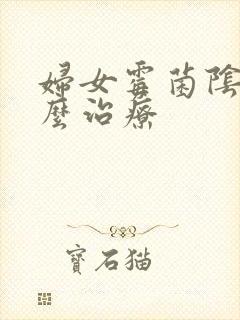 婦女霉菌陰
麼治療
寶石猫